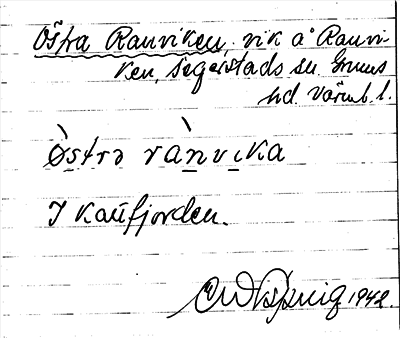 Östra Ranviken, vik å Ranvi-
ken, Segerstads sn Grums
hd. Värmb. l.
Östrə rànvika
I Kaufjorden.
1942.